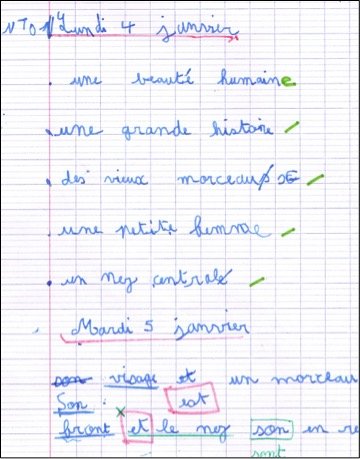 Lundi 4 janvier
une beauté humaine
une grande histoire
des vieux morceaux
une petite femme
un nez central
Mardi 5 janvrier
son visage et un morceau
Son : est
front et le nez son en re
sont